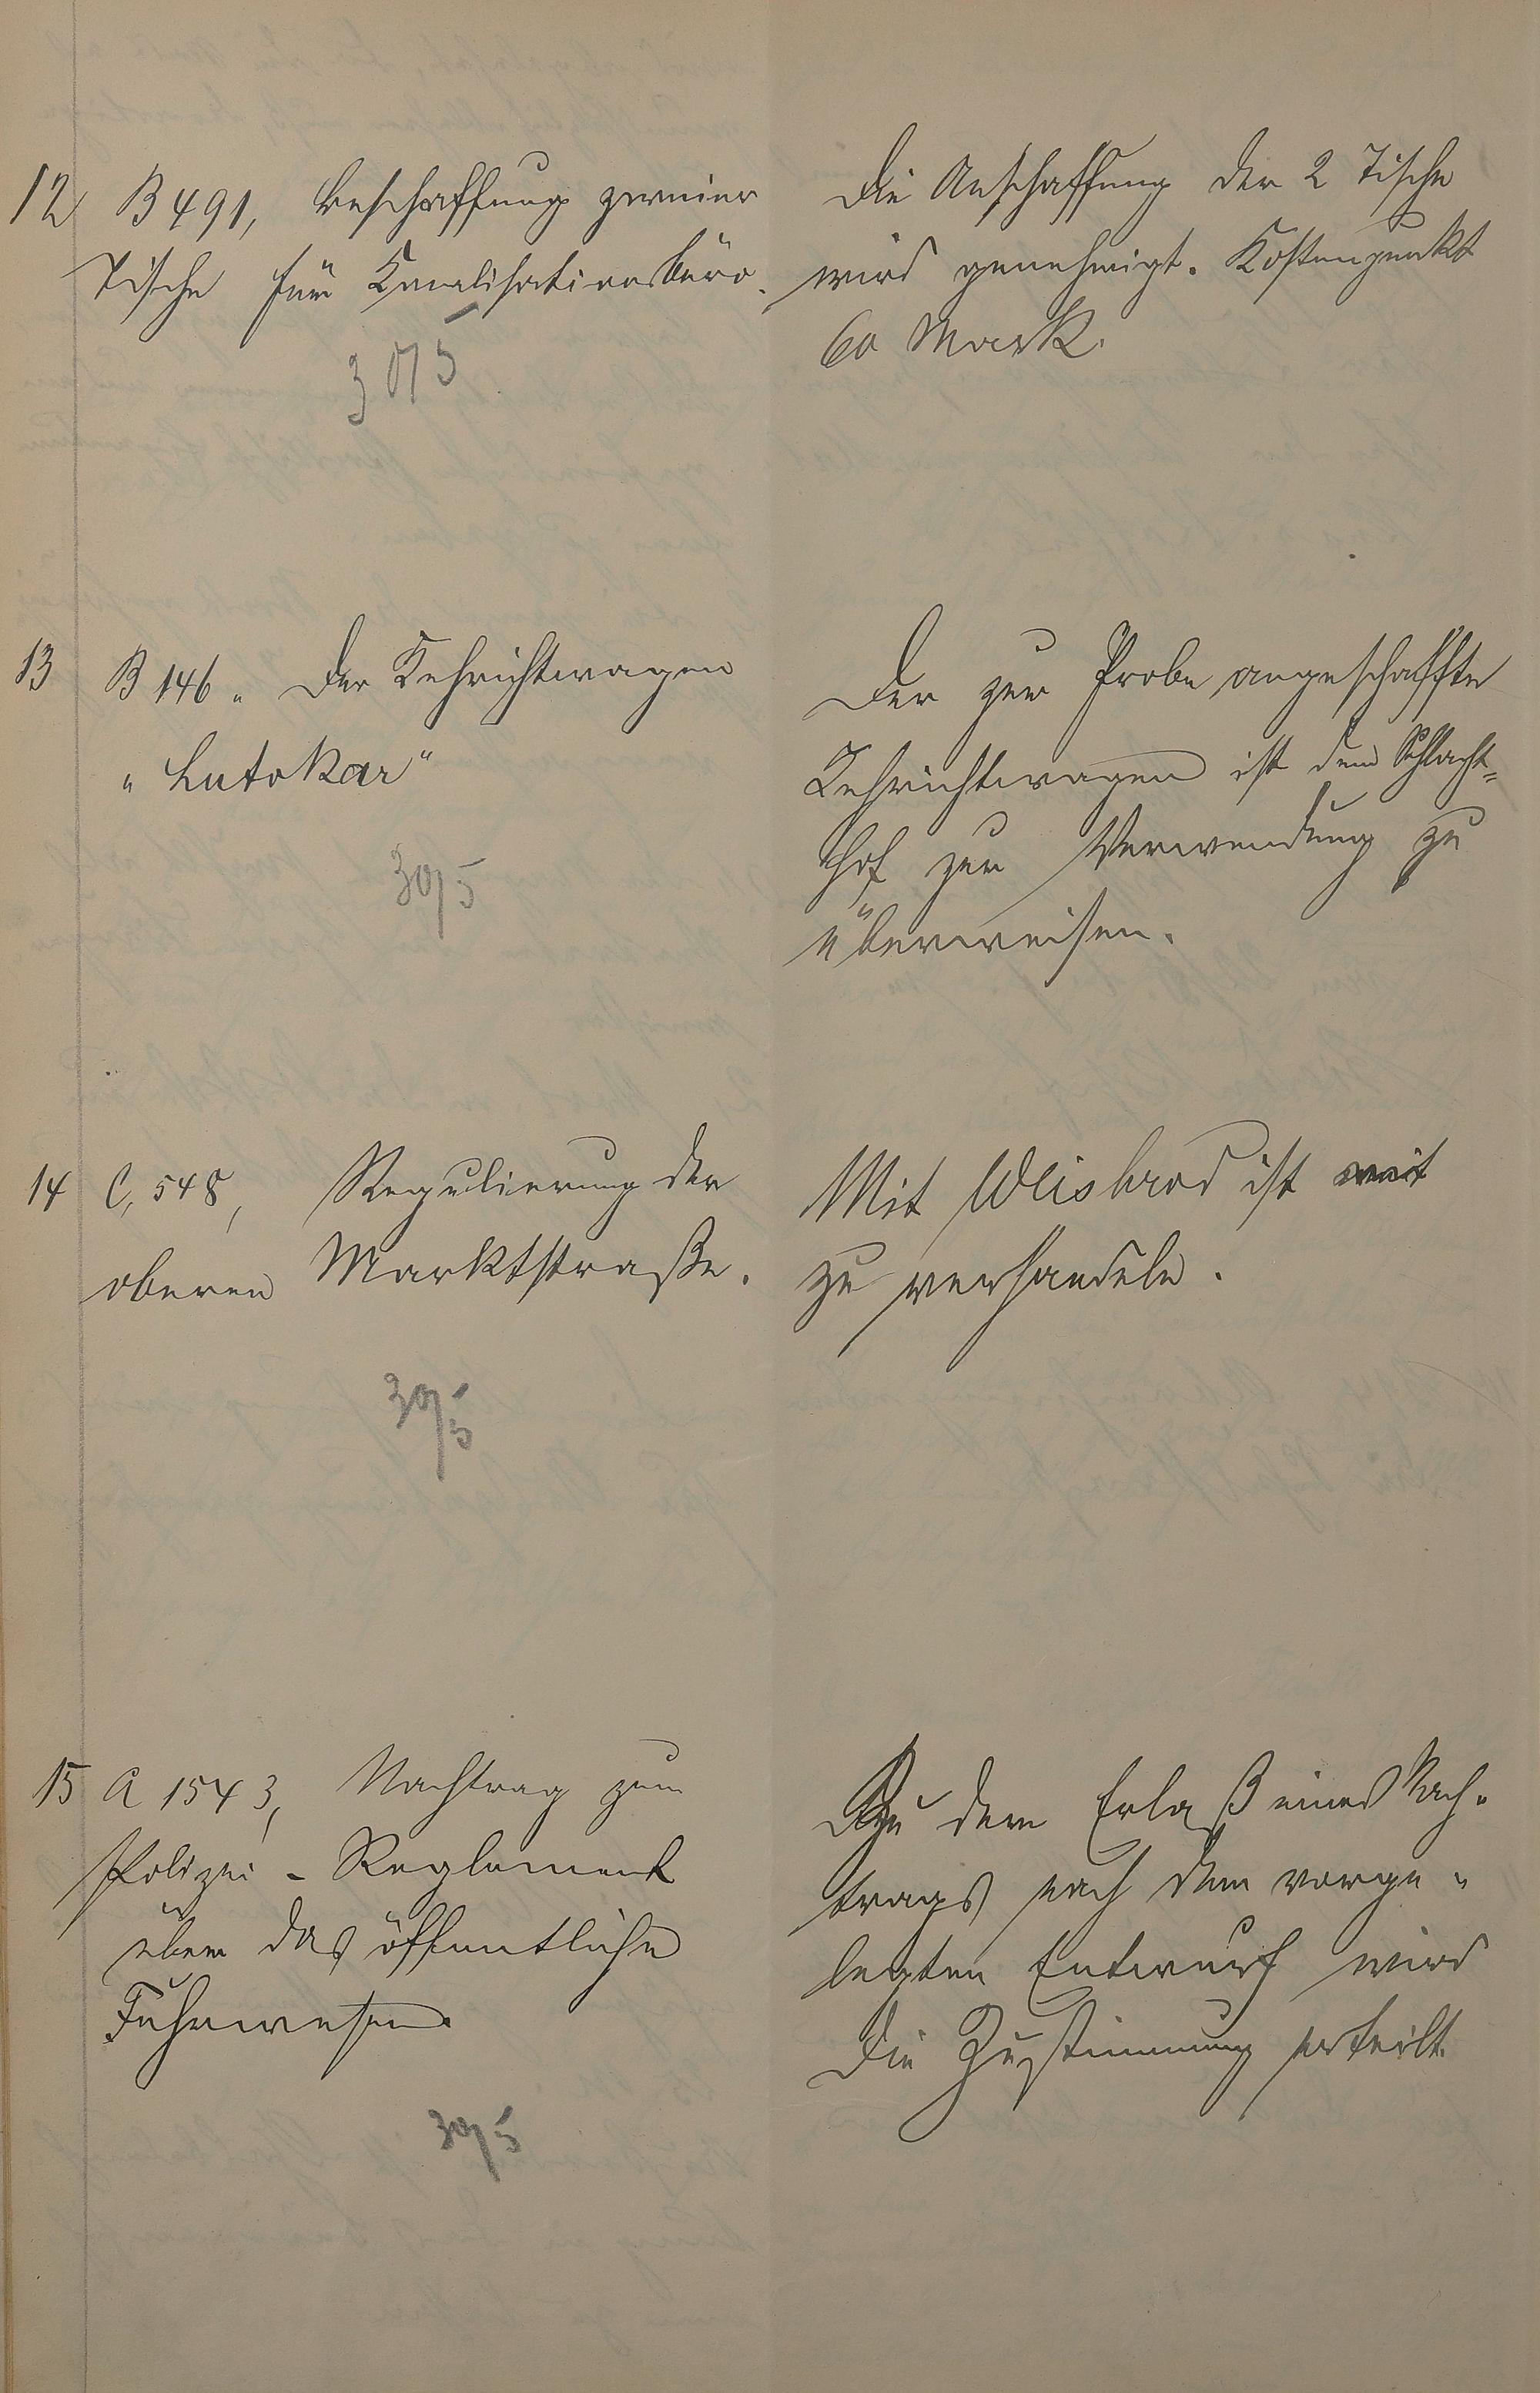 12 B 491, Beschaffung zweier
Tische für Kanalisationsbüro.
30/5
Die Anschaffung der 2 Tische
wird genehmigt. Kostenpunkt
60 Mark.
13 B 146. Der Kehrichtwagen
„Lutokar“
30/5
Der zur Probe angeschaffte
Kehrichtwagen ist dem Schlacht-
hof zur Verwendung zu
überweisen.
14 C, 548, Regulierung der
oberen Marktstraße.
30/5
Mit Weisbrod ist
zu verhandeln.
15 A 1543, Nachtrag zum
Polizei-Reglement
über das öffentliche
Fuhrwesen.
30/5
Zu dem Erlaß eines Nach-
trags nach dem vorge-
legten Entwurf wird
die Zustimmung erteilt.